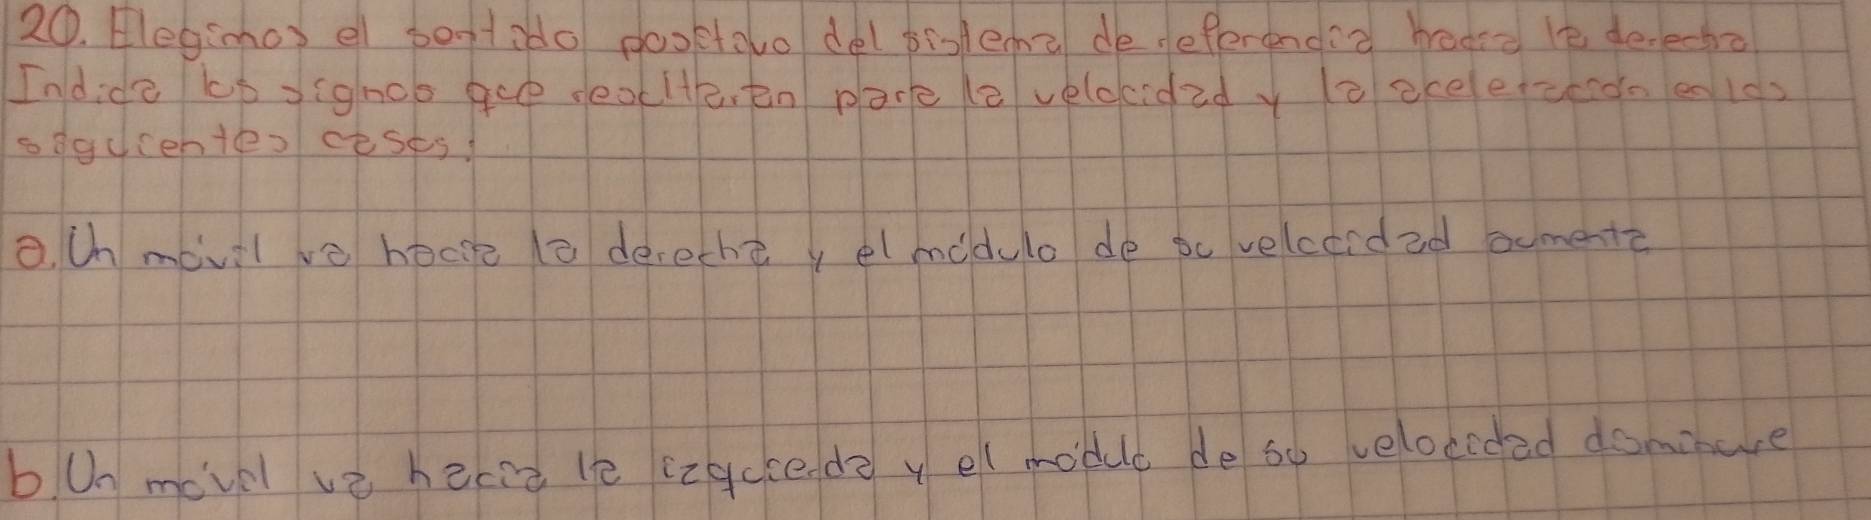 20. Elegimos el sentido positivo del sistema de referencia hacia la derecha
Indica los signos que resultarán para la velocidad y la aceleración en los
siguientes casos:
a. Un móvil va hacia la derecha y el módulo de su velocidad aumenta
b. Un móvil va hacia la izquierda y el módulo de su velocidad disminuye